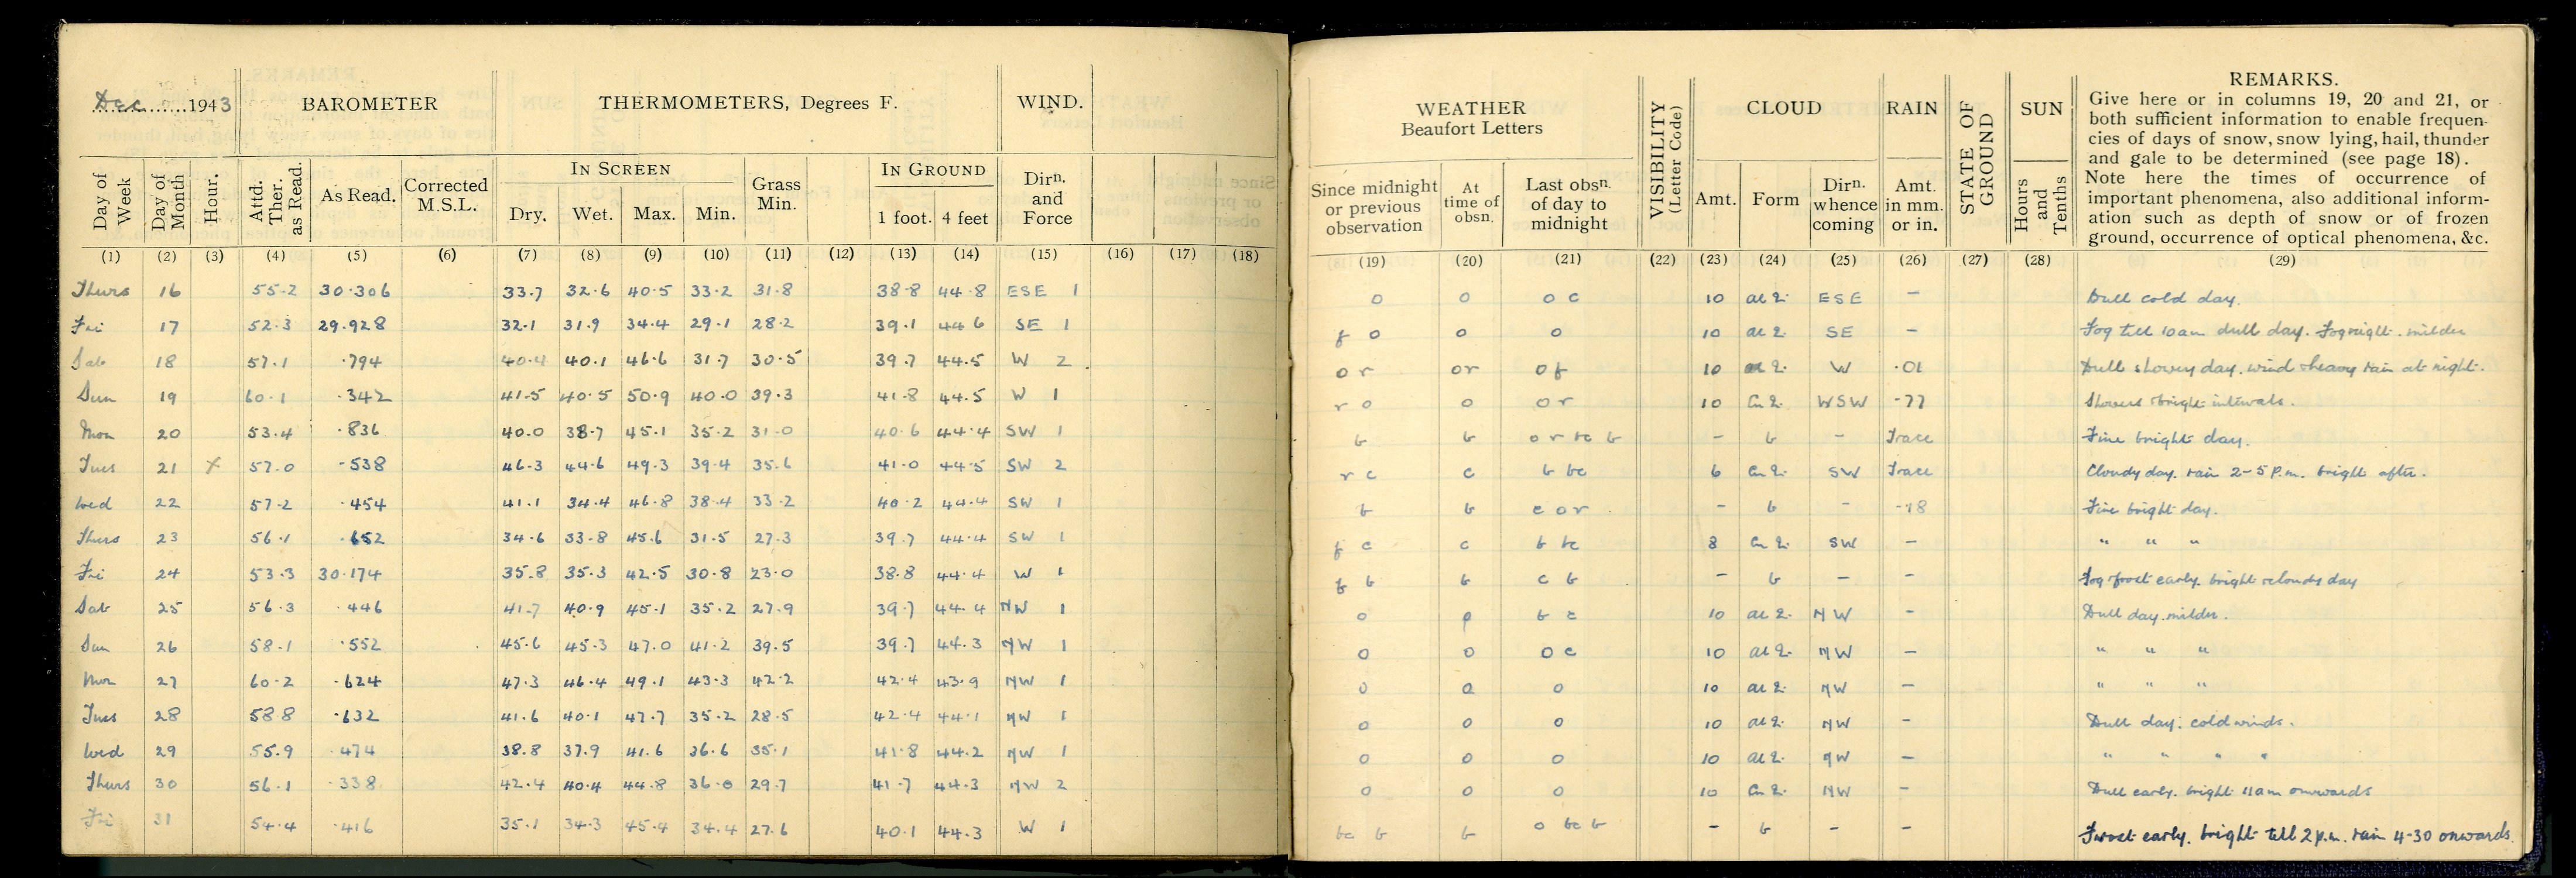 Dec 1943 BAROMETER THERMOMETERS, Degrees F. WIND.
Day of Week Day of Month Hour. Attd. Ther. as Read. As Read. Corrected M.S.L. IN SCREEN Dry. Wet. Max. Min. Grass Min. IN GROUND 1 foot. 4 feet Dirn. and Force
(1) (2) (3) (4) (5) (6) (7) (8) (9) (10) (11) (12) (13) (14) (15) (16) (17) (18)
Thurs 16 55.2 30.306 33.7 32.6 40.5 33.2 31.8 38.8 44.8 ESE 1
Fri 17 52.3 29.928 32.1 31.9 34.4 29.1 28.2 39.1 44.6 SE 1
Sat 18 57.1 .794 40.4 40.1 46.6 31.7 30.5 39.7 44.5 W 2
Sun 19 60.1 .342 41.5 40.5 50.9 40.0 39.3 41.8 44.5 W 1
Mon 20 53.4 .836 40.0 38.7 45.1 35.2 31.0 40.6 44.4 SW 1
Tues 21 x 57.0 .538 46.3 44.6 49.3 39.4 35.6 41.0 44.5 SW 2
Wed 22 57.2 .454 41.1 34.4 46.8 38.4 33.2 40.2 44.4 SW 1
Thurs 23 56.1 .652 34.6 33.8 45.6 31.5 27.3 39.7 44.4 SW 1
Fri 24 53.3 30.174 35.8 35.3 42.5 30.8 23.0 38.8 44.4 W 1
Sat 25 56.3 .446 41.7 40.9 45.1 35.2 27.9 39.7 44.4 NW 1
Sun 26 58.1 .552 45.6 45.3 47.0 41.2 39.5 39.7 44.3 NW 1
Mon 27 60.2 .624 47.3 46.4 49.1 43.3 42.2 42.4 43.9 NW 1
Tues 28 58.8 .632 41.6 40.1 47.7 35.2 28.5 42.4 44.1 NW 1
Wed 29 55.9 .474 38.8 37.9 41.6 36.6 35.1 41.8 44.2 NW 1
Thurs 30 56.1 .338 42.4 40.4 44.8 36.0 29.7 41.7 44.3 NW 2
Fri 31 54.4 .416 35.1 34.3 45.4 34.4 27.6 40.1 44.3 W 1
WEATHER Beaufort Letters VISIBILITY (Letter Code) CLOUD RAIN STATE OF GROUND SUN
REMARKS.
Give here or in columns 19, 20 and 21, or
both sufficient information to enable frequen-
cies of days of snow, snow lying, hail, thunder
and gale to be determined (see page 18).
Note here the times of occurrence of
important phenomena, also additional inform-
ation such as depth of snow or of frozen
ground, occurrence of optical phenomena, &c.
Since midnight or previous observation At time of obsn. Last obsn. of day to midnight Amt. Form Dirn. whence coming Amt. in mm. or in. Hours and Tenths
(19) (20) (21) (22) (23) (24) (25) (26) (27) (28) (29)
o o o c 10 ESE - Dull cold day.
f o o o 10 SE - Fog till 10am dull day. Fog night. milder
o r or o f 10 W .01 Dull showery day. wind & heavy rain at night.
r o o o r 10 WSW .77 Showers & bright intervals.
b b o r bc b - b - Trace Fine bright day.
r c c b bc 6 SW Trace Cloudy day. rain 2-5 p.m. bright after.
b b c o r - b - .18 Fine bright day.
f c c b bc 8 SW - " " "
f b b c b - b - - Fog & frost early. bright & cloudy day
o o b c 10 NW - Dull day. milder.
o o o c 10 NW - " " "
o o o 10 NW - " " "
o o o 10 NW - Dull day. cold winds.
o o o 10 NW - " " " "
o o o 10 NW - Dull early. bright 11am onwards
bc b b o bc b - b - - Frost early. bright till 2 p.m. rain 4-30 onwards.